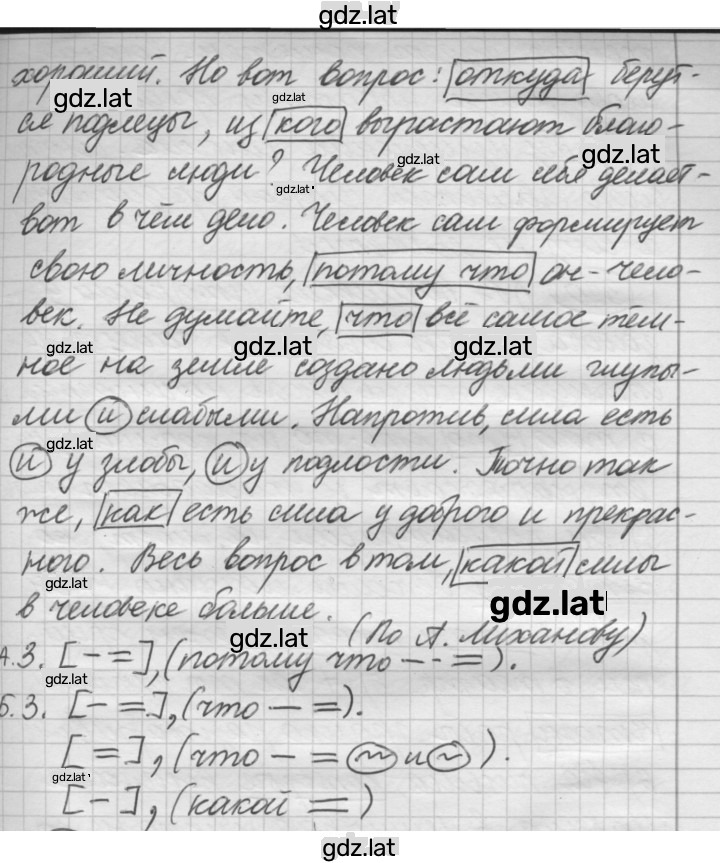 gdz.lat
хороший. Но вот вопрос: откуда берут-
gdz.lat
gdz.lat
ся подлецы, из кого вырастают благо-
gdz.lat
gdz.lat
родные люди? Человек сам себя делает-
gdz.lat
вот в чём дело. Человек сам формирует
свою личность, потому что он - чело-
век. Не думайте, что всё самое тём-
gdz.lat
gdz.lat
gdz.lat
ное на земле создано людьми глупы-
ми и слабыми. Напротив, сила есть
gdz.lat
и у злобы, и у подлости. Точно так
же, как есть сила у доброго и прекрас-
ного. Весь вопрос в том, какой силы
gdz.lat
gdz.lat
в человеке больше.
gdz.lat
(По А. Лиханову)
А.3. [- =], (потому что - - =).
gdz.lat
Б.3. [- =], (что - =).
[=], (что - = ~ и ~).
gdz.lat
[-], (какой =)
gdz.lat